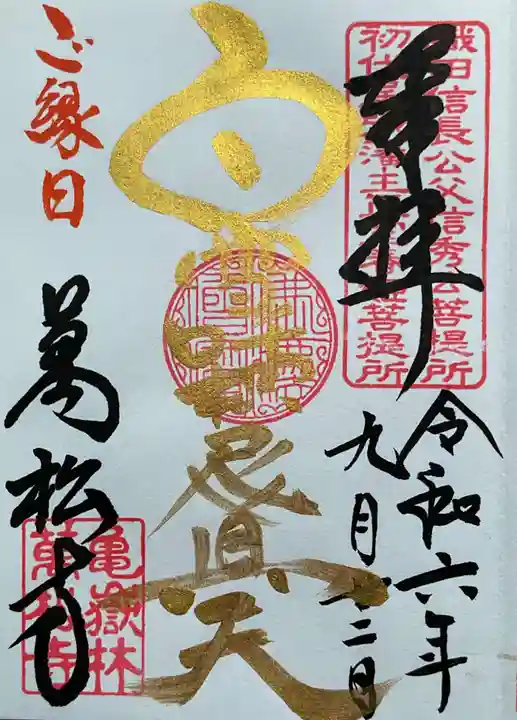 奉拝
織田信長公父信秀公菩提所
初代尾張藩主正室春姫菩提所
令和六年
九月廿二日
尼真天
ご縁日
萬松寺
亀嶽林
萬松寺